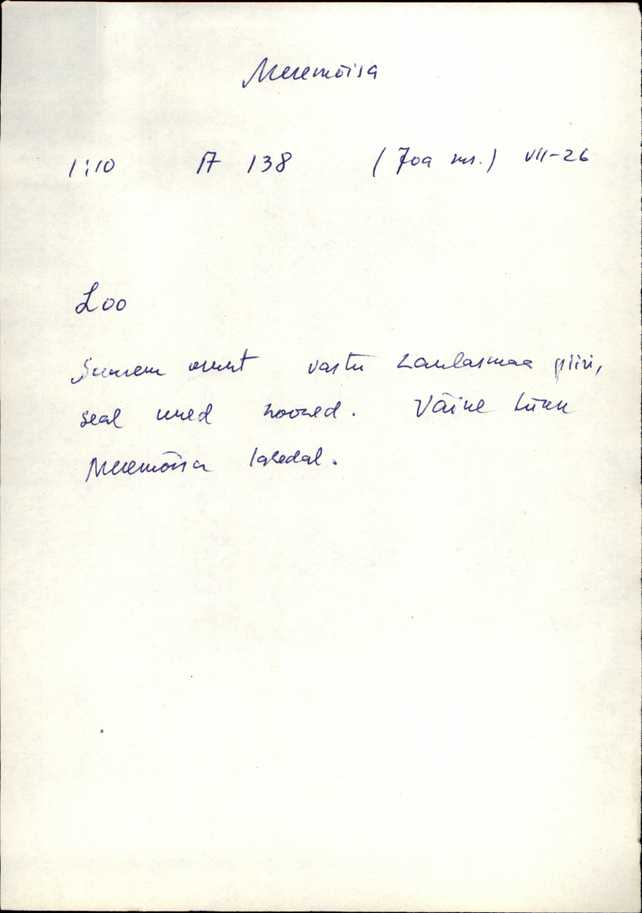 Meremõisa
1:10 A 138 (Joa ms.) VII-26
Loo
Suurem osast vastu Laulasmaa piiri,
seal uued hooned. Väine tükk
Meremõisa lahedal.